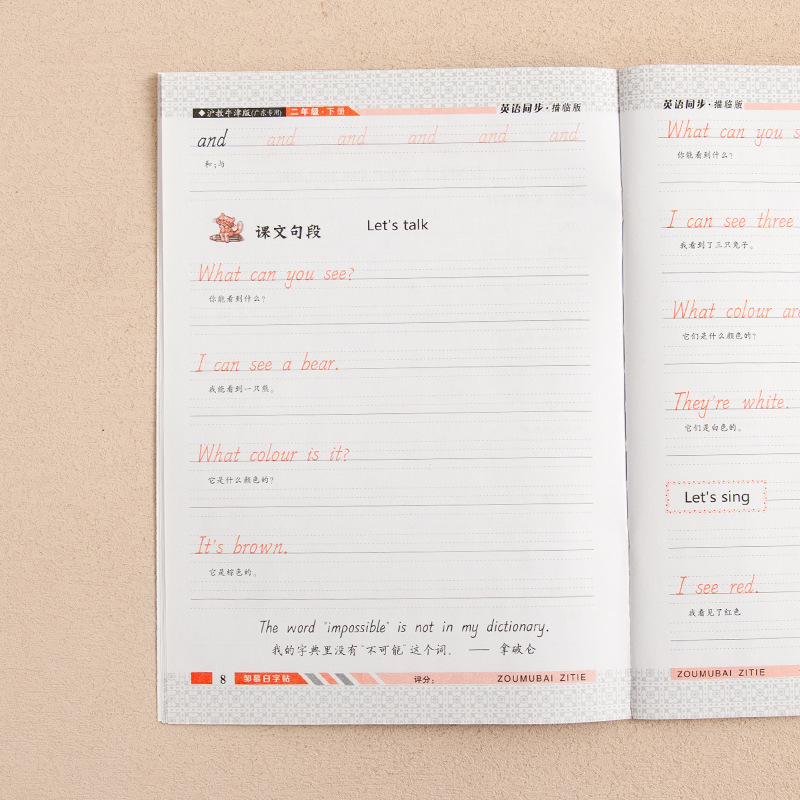 ◆沪教牛津版(广东专用) 二年级·下册 英语同步·描临版
and and and and and and
和;与
课文句段 Let's talk
What can you see?
你能看到什么?
I can see a bear.
我能看到一只熊。
What colour is it?
它是什么颜色的?
It's brown.
它是棕色的。
The word "impossible" is not in my dictionary.
我的字典里没有"不可能"这个词. —— 拿破仑
8 邹慕白字帖 评分: ZOUMUBAI ZITIE
英语同步·描临版
What can you
你能看到什么?
I can see three
我看到了三只兔子。
What colour
它们是什么颜色的?
They're white.
它们是白色的。
Let's sing
I see red.
我看见了红色
ZOUMUBAI ZITIE